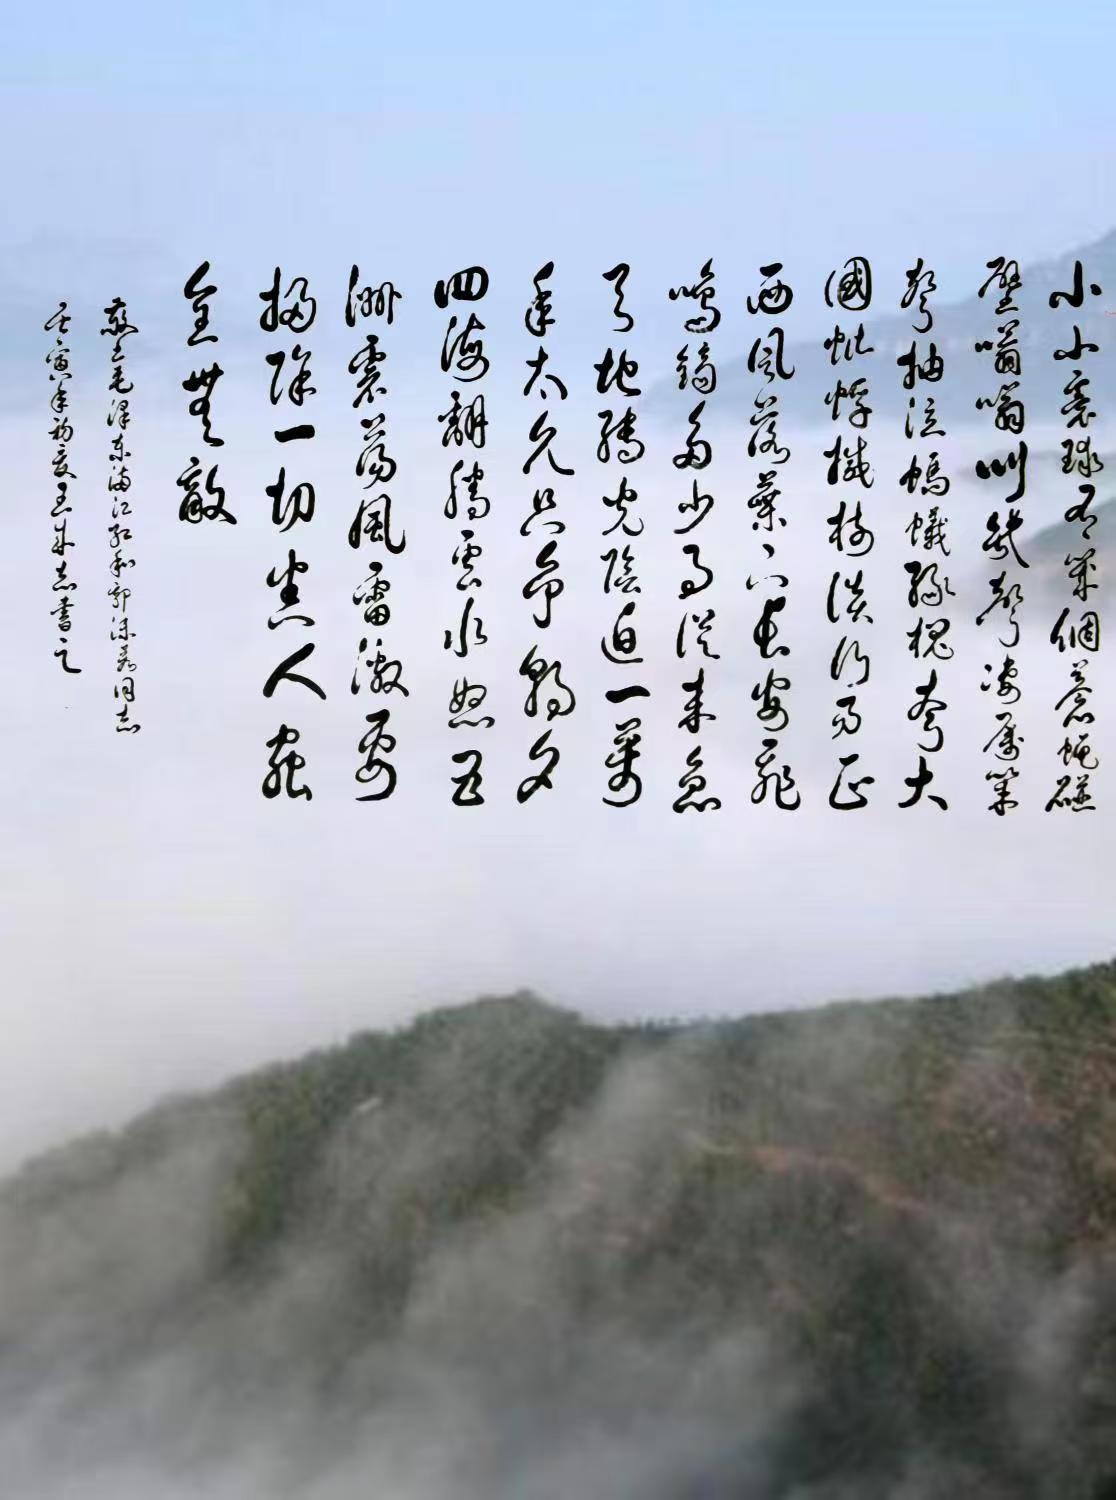 小小寰球有幾個蒼蠅碰
壁嗡嗡叫幾聲淒厲幾
聲抽泣螞蟻緣槐夸大
國蚍蜉撼樹談何易正
西風落葉下長安飛
鳴鏑多少事從來急
天地轉光陰迫一萬
年太久只爭朝夕
四海翻騰雲水怒五
洲震蕩風雷激要
掃除一切害人蟲
全無敵
毛澤东滿江紅和郭沫若同志
壬寅年初夏王志書之